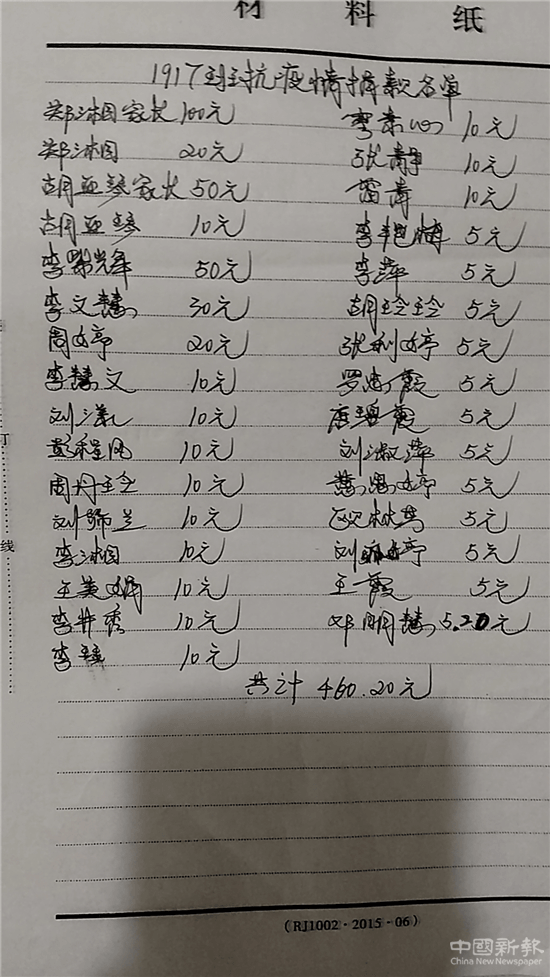 材料纸
1917班抗疫情捐款名单
郑湘园家长 100元 弯素心 10元
郑湘园 20元 张静 10元
胡亚琴家长 50元 雷涛 10元
胡亚琴 10元 李艳梅 5元
李翠锋 50元 李萍 5元
李文慧 30元 胡玲玲 5元
周婷 20元 张利婷 5元
李慧文 10元 罗惠霞 5元
刘漾 10元 唐碧霞 5元
彭程凤 10元 刘淑萍 5元
周丹玲 10元 婷 5元
刘师兰 10元 欧林芳 5元
李湘园 10元 刘婷 5元
王美娟 10元 王霞 5元
李井秀 10元 邓明慧 5.20元
李 10元
共计 460.20元
订
线
(RJ1002·2015-06)
中國新報
China New Newspaper